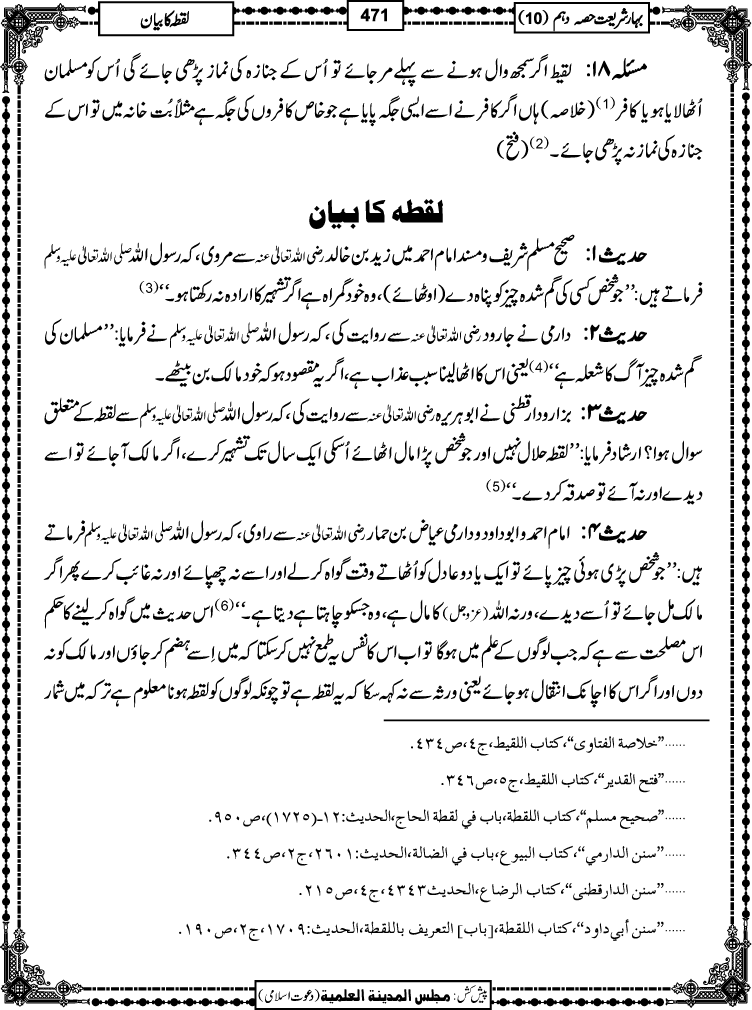 بہار شریعت حصہ دہم (10)
471
لقطہ کا بیان
مسئلہ ۱۸: لقیط اگر سمجھ وال ہونے سے پہلے مر جائے تو اُس کے جنازہ کی نماز پڑھی جائے گی اُس کو مسلمان
اُٹھا لایا ہو یا کافر (1) (خلاصہ) ہاں اگر کافر نے اسے ایسی جگہ پایا ہے جو خاص کافروں کی جگہ ہے مثلاً بُت خانہ میں تو اس کے
جنازہ کی نماز نہ پڑھی جائے۔ (2) (فتح)
لقطہ کا بیان
حدیث ۱: صحیح مسلم شریف و مسند امام احمد میں زید بن خالد رضی اللہ تعالیٰ عنہ سے مروی، کہ رسول اللہ صلی اللہ تعالیٰ علیہ وسلم
فرماتے ہیں: ’’جو شخص کسی کی گم شدہ چیز کو پناہ دے (اوٹھائے)، وہ خود گمراہ ہے اگر تشہیر کا ارادہ نہ رکھتا ہو۔‘‘ (3)
حدیث ۲: دارمی نے جارود رضی اللہ تعالیٰ عنہ سے روایت کی، کہ رسول اللہ صلی اللہ تعالیٰ علیہ وسلم نے فرمایا: ’’مسلمان کی
گم شدہ چیز آگ کا شعلہ ہے‘‘ (4) یعنی اس کا اٹھا لینا سبب عذاب ہے، اگر یہ مقصود ہو کہ خود مالک بن بیٹھے۔
حدیث ۳: بزار و دارقطنی نے ابوہریرہ رضی اللہ تعالیٰ عنہ سے روایت کی، کہ رسول اللہ صلی اللہ تعالیٰ علیہ وسلم سے لقطہ کے متعلق
سوال ہوا؟ ارشاد فرمایا: ’’لقطہ حلال نہیں اور جو شخص پڑا مال اٹھائے اُسکی ایک سال تک تشہیر کرے، اگر مالک آجائے تو اسے
دیدے اور نہ آئے تو صدقہ کر دے۔‘‘ (5)
حدیث ۴: امام احمد و ابو داود و دارمی عیاض بن حمار رضی اللہ تعالیٰ عنہ سے راوی، کہ رسول اللہ صلی اللہ تعالیٰ علیہ وسلم فرماتے
ہیں: ’’جو شخص پڑی ہوئی چیز پائے تو ایک یا دو عادل کو اُٹھاتے وقت گواہ کرلے اور اسے نہ چھپائے اور نہ غائب کرے پھر اگر
مالک مل جائے تو اُسے دیدے، ورنہ اللہ (عزوجل) کا مال ہے، وہ جسکو چاہتا ہے دیتا ہے۔‘‘ (6) اس حدیث میں گواہ کر لینے کا حکم
اس مصلحت سے ہے کہ جب لوگوں کے علم میں ہوگا تو اب اس کا نفس یہ طمع نہیں کر سکتا کہ میں اِسے ہضم کر جاؤں اور مالک کو نہ
دوں اور اگر اس کا اچانک انتقال ہو جائے یعنی ورثہ سے نہ کہہ سکا کہ یہ لقطہ ہے تو چونکہ لوگوں کو لقطہ ہونا معلوم ہے ترکہ میں شمار
......”خلاصة الفتاوى“، كتاب اللقيط، ج٤، ص٤٣٤.
......”فتح القدير“، كتاب اللقيط، ج٥، ص٣٤٦.
......”صحيح مسلم“، كتاب اللقطة، باب في لقطة الحاج، الحديث: ١٢-(١٧٢٥)، ص٩٥٠.
......”سنن الدارمي“، كتاب البيوع، باب في الضالة، الحديث: ٢٦٠١، ج٢، ص٣٤٤.
......”سنن الدارقطنى“، كتاب الرضاع، الحديث ٤٣٤٣، ج٤، ص٢١٥.
......”سنن أبي داود“، كتاب اللقطة، [باب] التعريف باللقطة، الحديث: ١٧٠٩، ج٢، ص١٩٠.
پیش کش: مجلس المدینة العلمیة (دعوت اسلامی)